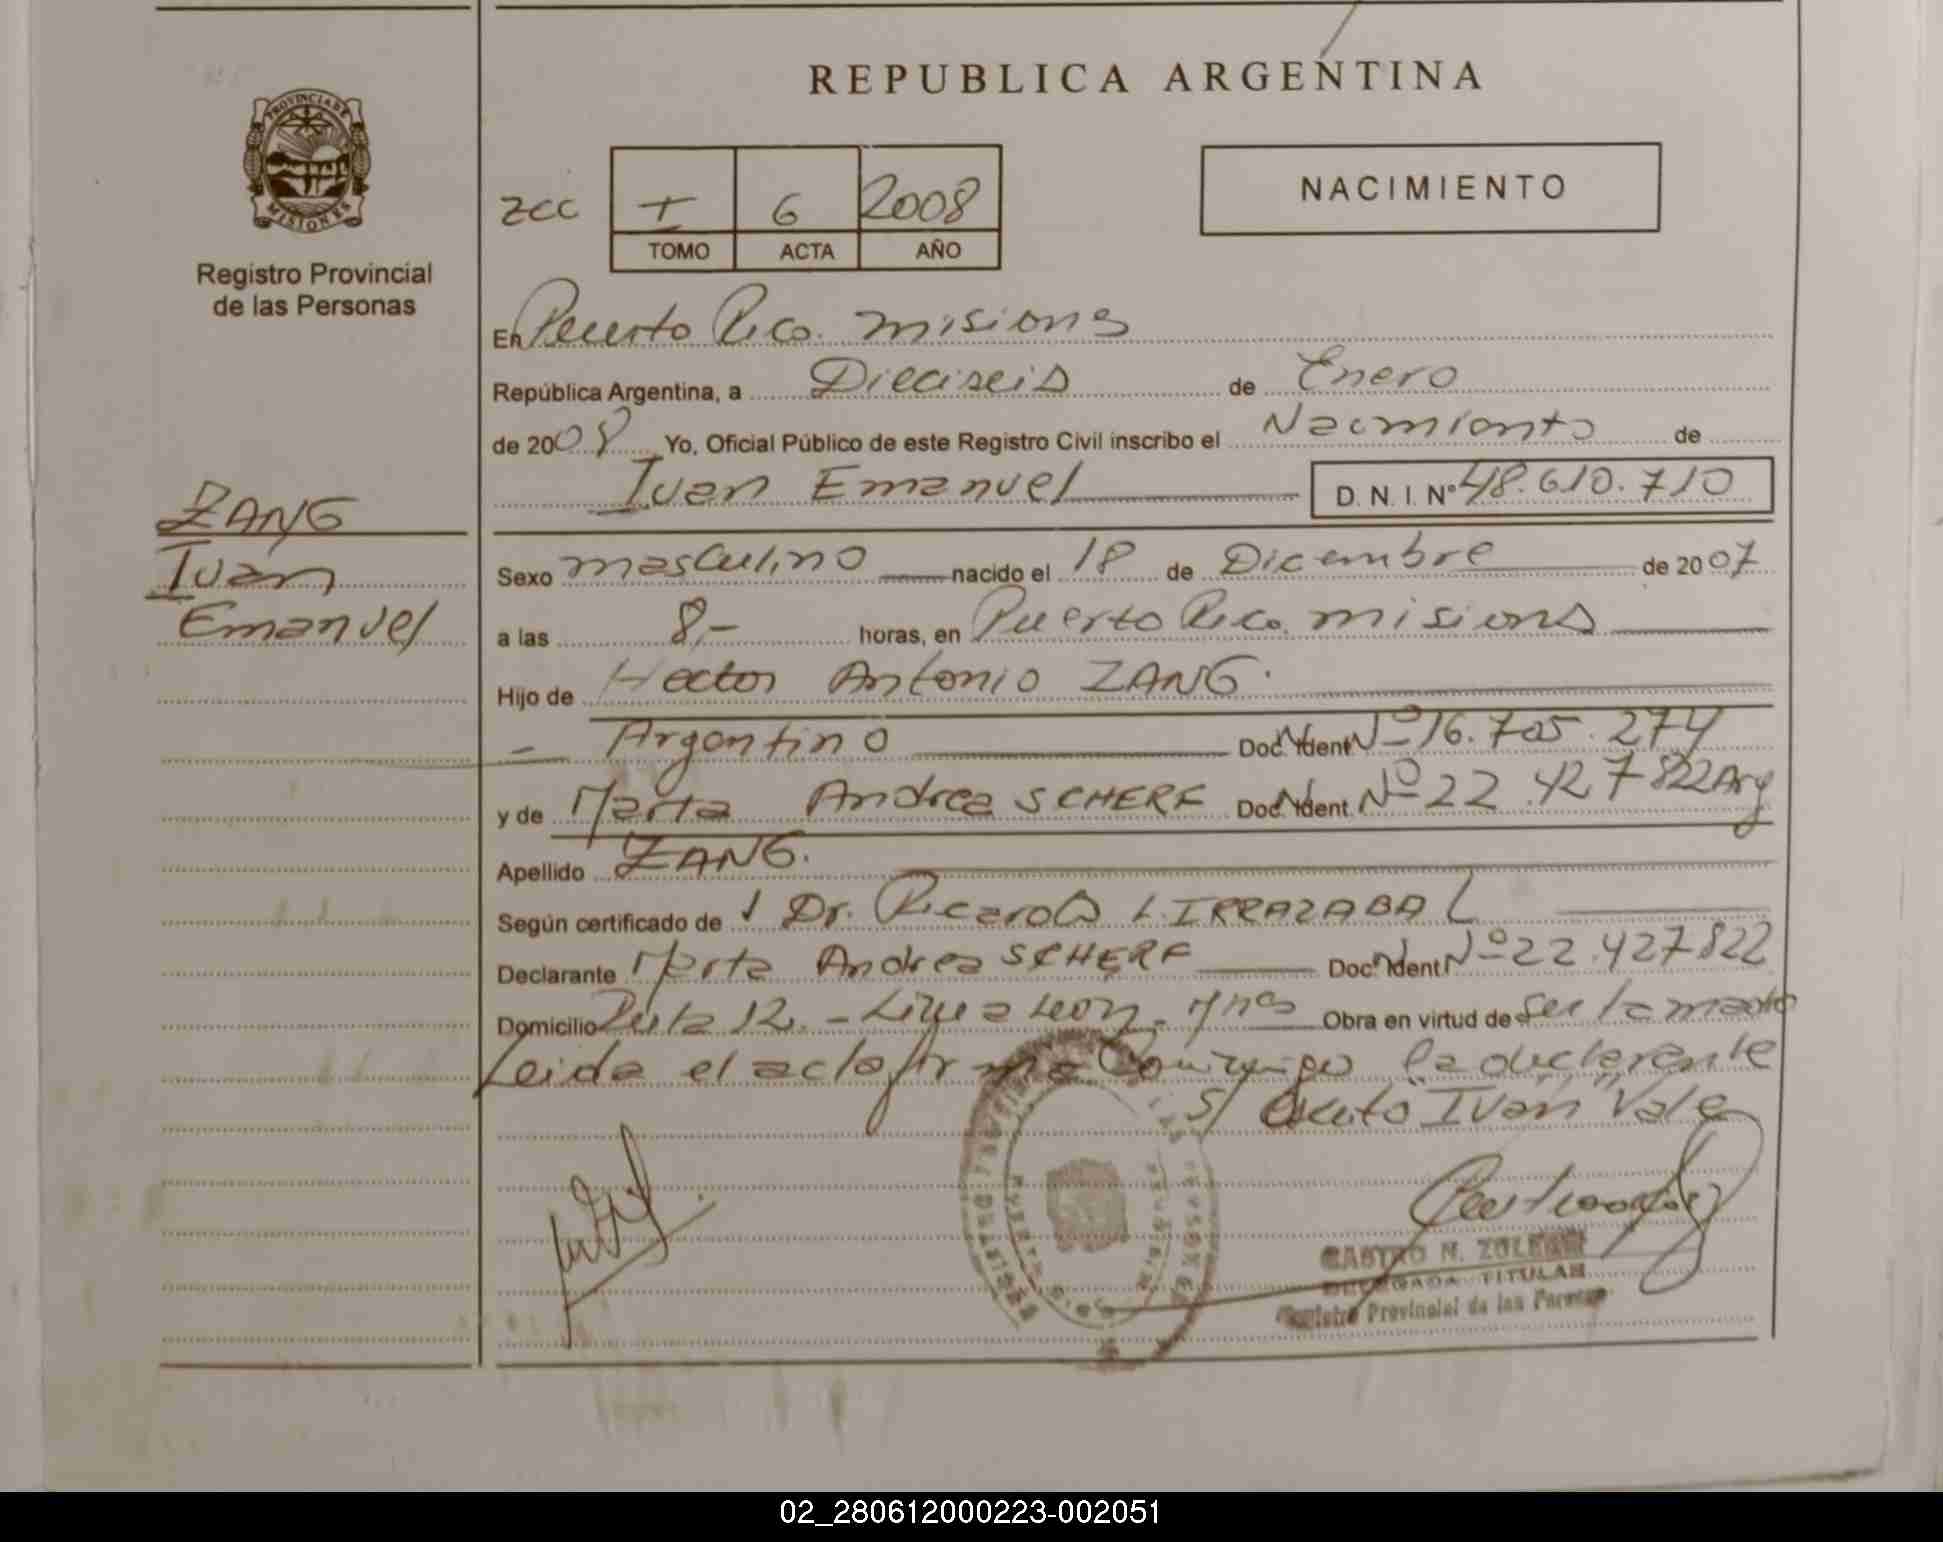 REPUBLICA ARGENTINA
PROVINCIA DE
MISIONES
Registro Provincial
de las Personas
NACIMIENTO
zcc I 6 2008
TOMO ACTA AÑO
En Puerto Rico. misiones
República Argentina, a Dieciseis de Enero
de 2008 Yo, Oficial Público de este Registro Civil inscribo el Nacimiento de
Ivan Emanuel D. N. I. Nº 48.610.710
ZANG
Ivan
Emanuel
Sexo masculino nacido el 18 de Diciembre de 2007
a las 8,- horas, en Puerto Rico. misiones
Hijo de Hector Antonio ZANG.
Argentino Doc. Ident. Nº 16.705.274
y de Marta Andrea SCHERF Doc. Ident. Nº 22.427822 Arg
Apellido ZANG.
Según certificado de Dr. Ricardo L. IRRAZABAL
Declarante Marta Andrea SCHERF Doc. Ident. Nº 22.427822
Domicilio Ruta 12. - Mnes Obra en virtud de ser la madre
Leida el acta firma Conmigo la declarente
S/ "Ivan" Vale
CASTRO N.
DELEGADA TITULAR
Registro Provincial de las Personas
02_280612000223-002051